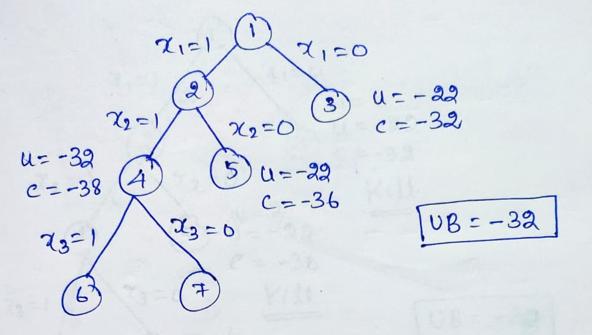 1
x₁=1 x₁=0
2
3 u = -22
c = -32
x₂=1 x₂=0
u = -32
c = -38
4
5 u = -22
c = -36
UB = -32
x₃=1 x₃=0
6 7